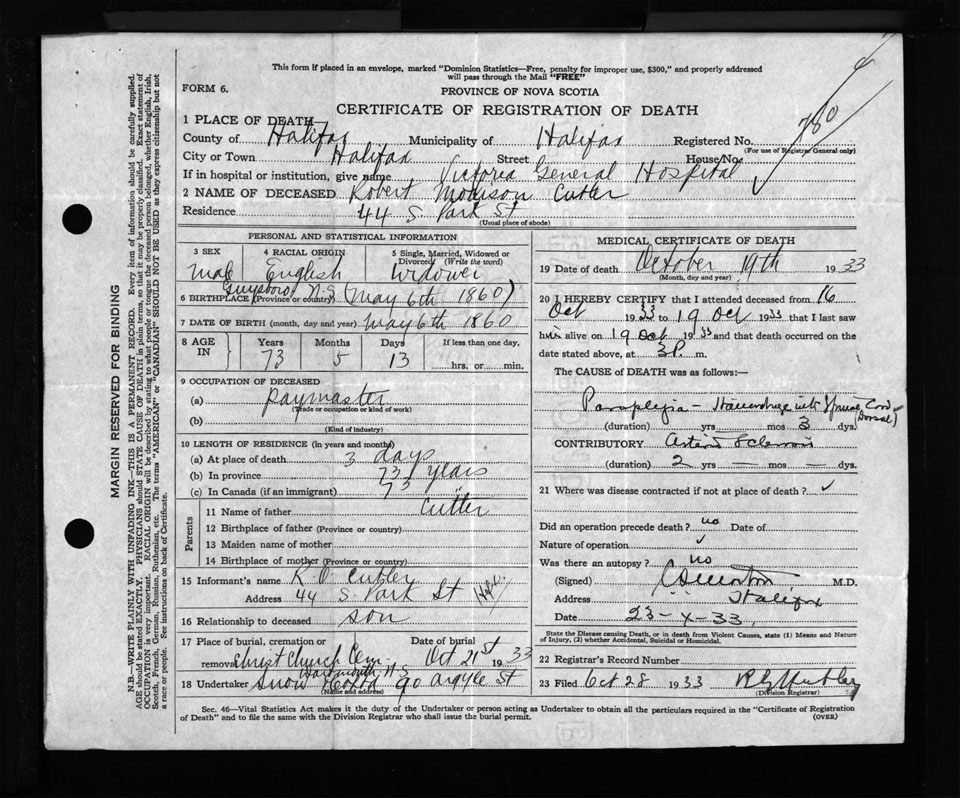 This form if placed in an envelope, marked "Dominion Statistics—Free, penalty for improper use, $300," and properly addressed
will pass through the Mail "FREE"
FORM 6.
PROVINCE OF NOVA SCOTIA
CERTIFICATE OF REGISTRATION OF DEATH
1 PLACE OF DEATH
County of Halifax Municipality of Halifax Registered No. 780
(For use of Registrar General only)
City or Town Halifax Street House No.
If in hospital or institution, give name Victoria General Hospital
2 NAME OF DECEASED Robert Cutler
Residence 44 S. Park St
(Usual place of abode)
PERSONAL AND STATISTICAL INFORMATION
3 SEX 4 RACIAL ORIGIN 5 Single, Married, Widowed or Divorced (Write the word)
Male English Widower
6 BIRTHPLACE (Province or country) Guysboro N.S (May 6th 1860)
7 DATE OF BIRTH (month, day and year) May 6th 1860
8 AGE IN Years Months Days If less than one day.
73 5 13 hrs. or min.
9 OCCUPATION OF DECEASED
(a) Paymaster
(Trade or occupation or kind of work)
(b)
(Kind of industry)
10 LENGTH OF RESIDENCE (in years and months)
(a) At place of death 3 days
(b) In province 73 years
(c) In Canada (if an immigrant) 73 "
Parents
11 Name of father Cutler
12 Birthplace of father (Province or country)
13 Maiden name of mother
14 Birthplace of mother (Province or country)
15 Informant's name R. O. Cutler
Address 44 S. Park St Hfx.
16 Relationship to deceased son
17 Place of burial, cremation or Date of burial
removal Christ Church Cem Oct 21st 1933
Dartmouth N.S
18 Undertaker Snow 90 Argyle St
(Name and address)
MEDICAL CERTIFICATE OF DEATH
19 Date of death October 19th 1933
(Month, day and year)
20 I HEREBY CERTIFY that I attended deceased from 16
Oct 1933 to 19 Oct 1933 that I last saw
him alive on 19 Oct 1933 and that death occurred on the
date stated above, at 3 P. m.
The CAUSE of DEATH was as follows:—
Paraplegia — Haemorrhage into Spinal Cord
(Dorsal)
(duration) yrs mos 3 dys.
CONTRIBUTORY Sclerosis
(duration) 2 yrs — mos — dys.
21 Where was disease contracted if not at place of death?
Did an operation precede death? no Date of
Nature of operation
Was there an autopsy? no
(Signed) M.D.
Address Halifax
Date 23-X-33.
State the Disease causing Death, or in death from Violent Causes, state (1) Means and Nature
of Injury, (2) whether Accidental, Suicidal or Homicidal.
22 Registrar's Record Number
23 Filed Oct 28 1933
(Division Registrar)
Sec. 46—Vital Statistics Act makes it the duty of the Undertaker or person acting as Undertaker to obtain all the particulars required in the "Certificate of Registration
of Death" and to file the same with the Division Registrar who shall issue the burial permit. (OVER)
MARGIN RESERVED FOR BINDING
N.B.—WRITE PLAINLY WITH UNFADING INK—THIS IS A PERMANENT RECORD. Every item of information should be carefully supplied.
AGE should be stated EXACTLY. PHYSICIANS should STATE CAUSE OF DEATH in plain terms, so that it may be properly classified. Exact statement of
OCCUPATION is very important. RACIAL ORIGIN will be described by stating to what people or tongue the deceased person belonged, whether English, Irish,
Scotch, French, German, Russian, Ruthenian, etc. The terms "AMERICAN" or "CANADIAN" SHOULD NOT BE USED as they express citizenship but not
a race or people. See instructions on back of Certificate.